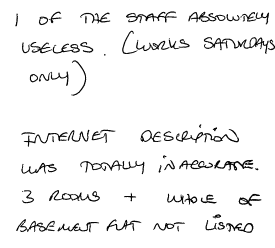 1 OF THE STAFF ABSOLUTELY
USELESS. (WORKS SATURDAYS
ONLY)
INTERNET DESCRIPTION
WAS TOTALLY INACCURATE.
3 ROOMS + WHOLE OF
BASEMENT FLAT NOT LISTED